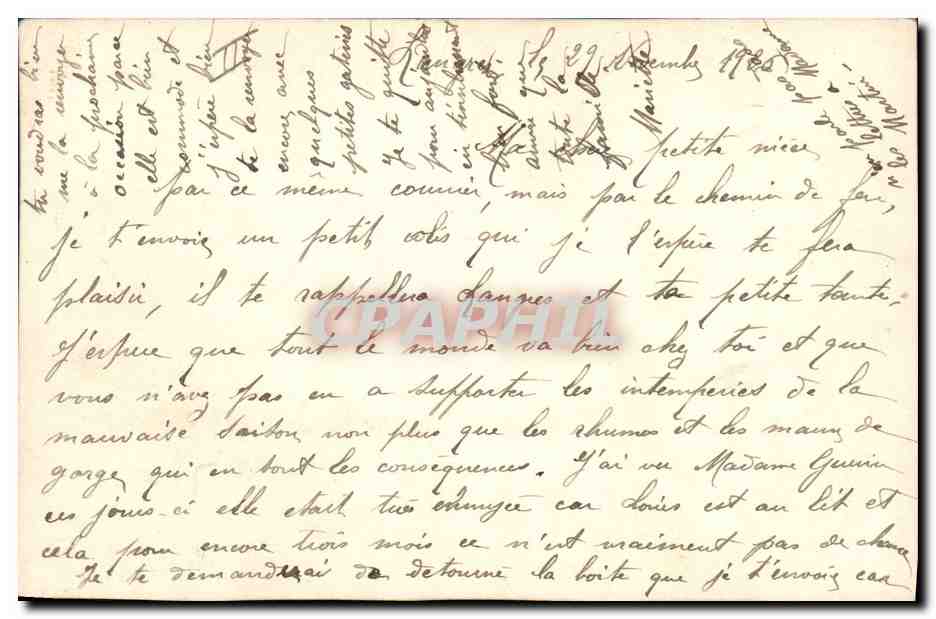 Le 29 Novembre
Ma petite nièce
par ce même courrier, mais par le chemin de fer,
je t'envoie un petit colis qui je l'espère te fera
plaisir, il te rappellera Langres et ta petite tante.
J'espère que tout le monde va bien chez toi et que
vous n'avez pas eu a supporter les intemperies de la
mauvaise saison, non plus que les rhumes et les maux de
gorge qui en sont les conséquences. J'ai vu Madame Guerin
ces jours-ci elle etait très ennuyée car Loüis est au lit et
cela pour encore trois mois ce n'est vraiment pas de chance
Je te demanderai de detourné la boite que je t'envoie car
tu voudras bien
me la renvoyer
à la prochaine
occasion parce
elle est bien
commode et
j'espère bien
te la renvoyer
encore avec
quelques
petites gatins
je te quitte
pour
en
fort
ainsi que
toute la
Mariette
CPARHIL